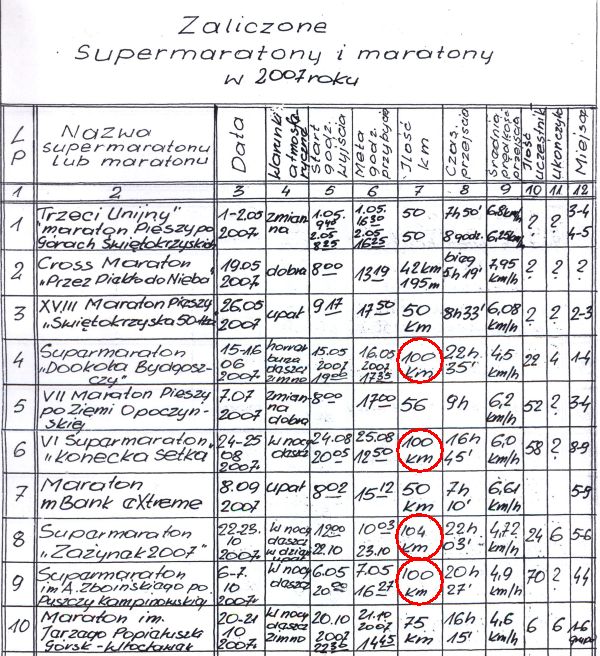 Zaliczone
Supermaratony i maratony
w 2007 roku
L P
Nazwa supermaratonu lub maratonu
Data
Warunki atmosferyczne
Start godz. wyjścia
Meta godz. przybycia
Ilość km
Czas. przejścia
Średnia prędkość przejścia
Ilość uczestnik
ukończyło
Miejsce
1 2 3 4 5 6 7 8 9 10 11 12
1 Trzeci Unijny" 1-2.05 zmian- 1.05. 1.05. 50 7h 50' 6,8km/h ? ? 3-4
maraton Pieszy po 2007 na 940 1630
Górach Świętokrzyskich 2.05 825 2.05 1625 50 8 godz. 6,25km/h 4-5
2 Cross Maraton 19.05 dobra 800 1319 42km bieg 7,95 ? ? ?
„Przez Piekło do Nieba" 2007. 195m 5h 19' km/h
3 XVIII Maraton Pieszy 26.05 upał 917 1750 50 8h33' 6,08 ? ? 2-3
„Świętokrzyska 50-tka 2007. km km/h
4 Supermaraton 15-16 15.05 16.05 100 22h 4,5 22 4 1-4
„Dookoła Bydgosz- 06 burza 2007 2007 km 35' km/h
czy" 2007. zimno 1900 1735
5 VII Maraton Pieszy 7.07 zmian- 800 1700 56 9h 6,2 52 ? 3-4
po Ziemi Opoczyń- 2007 na km/h
skiej dobra
6 VI Supermaraton" 24-25 W nocy 24.08 25.08 100 16h 6,0 58 ? 8-9
„Konecka Setka 08 deszcz 2005 1250 km 45' km/h
2007.
7 Maraton 8.09 upał 802 1512 50 7h 6,61 5-9
mBank eXtreme 2007 km 10' km/h
8 Supermaraton 22-23. W nocy 1200 1003 104 22h 4,72 24 6 5-6
„Zażynek 2007" 10 deszcz 22.10 23.10 km 03' km/h
2007.
9 Supermaraton 6-7. W nocy 6.05 7.05 100 20h 4,9 70 2 44
im A. Zboińskiego po 10 deszcz 2000 1627 km 27' km/h
Puszczy Kampinowskiej 2007r
10 Maraton im. 20-21 W nocy 20.10 21.10 75 16h 4,6 6 6 1-6
Jerzego Popiełuszki 10 deszcz 2007 2007 km 15' km/h
Górsk-Włocławek 2007r zimno 2230 1445